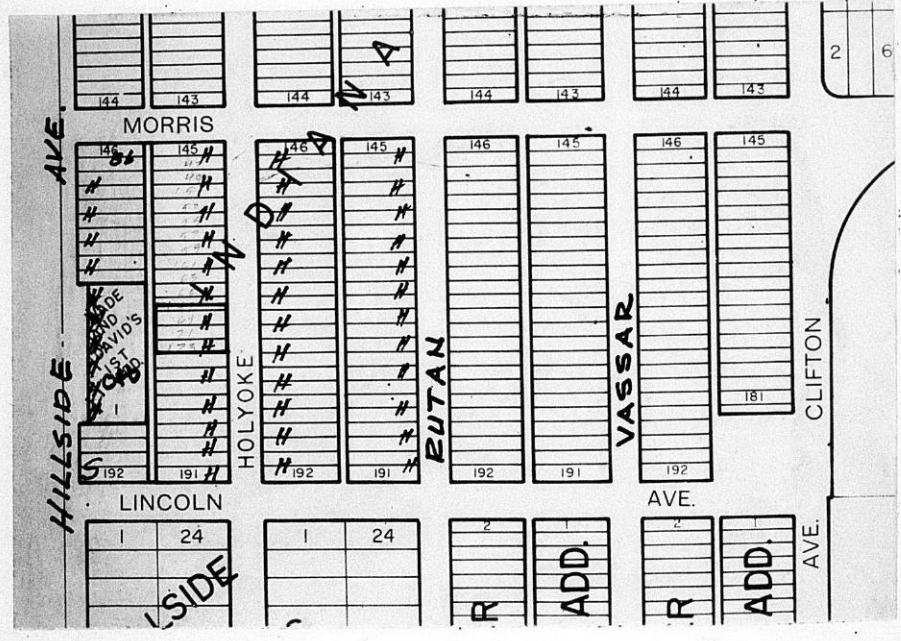 2 6
144 143 144 143 144 143 144 143
MORRIS
AVE.
146 145 146 145 146 145 146 145
86
H H H H
H H H H
H H H H
H H H H
H H H H
INDIANA
H H H
H H H
H H H
H H H
H H H
H H H
H H H
AND
DAVID'S
1ST
1
HILLSIDE
HOLYOKE
RUTAN
VASSAR
CLIFTON
181
S
192 191 192 191 192 191 192
LINCOLN AVE.
AVE.
1 24 1 24 2 1 2 1
LSIDE
R ADD. R ADD.